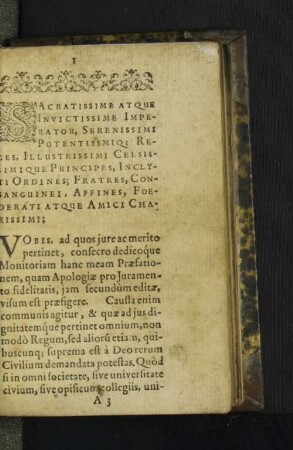 1
SACRATISSIME ATQUE
INVICTISSIME IMPE-
RATOR, SERENISSIMI
POTENTISSIMIQ; RE-
GES, ILLUSTRISSIMI CELSIS-
SIMIQUE PRINCIPES, INCLY-
TI ORDINES; FRATRES, CON-
SANGUINEI, AFFINES, FOE-
DERATI ATQUE AMICI CHA-
RISSIMI;
VOBIS, ad quos jure ac merito
pertinet, consecro dedicoque
Monitoriam hanc meam Præfatio-
nem, quam Apologiæ pro Juramen-
to fidelitatis, jam secundùm editæ,
visum est præfigere. Causa enim
communis agitur, & quæ ad jus di-
gnitatemque pertinet omnium, non
modò Regum, sed aliors etiam, qui-
buscunq; suprema est à Deo rerum
Civilium demandata potestas. Quòd
si in omni societate, sive universitate
civium, sive opificum collegiis, uni-
A 3